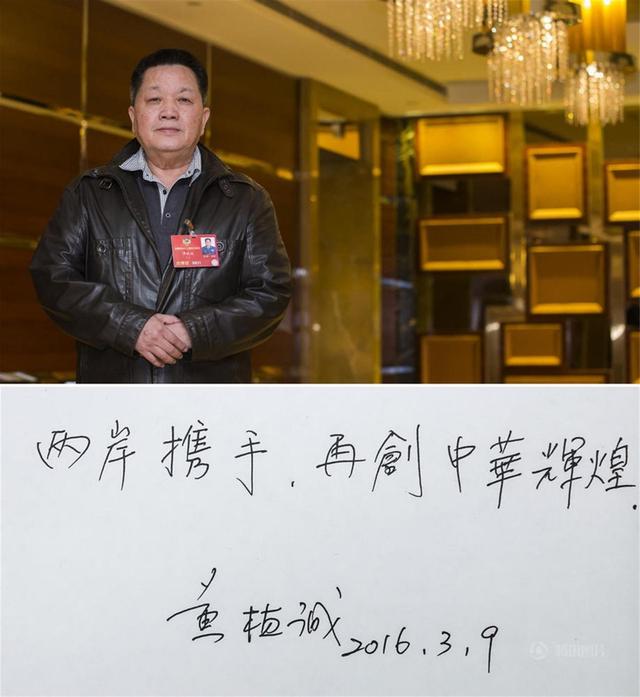 两岸携手,再創中華輝煌.
黄植诚 2016.3.9